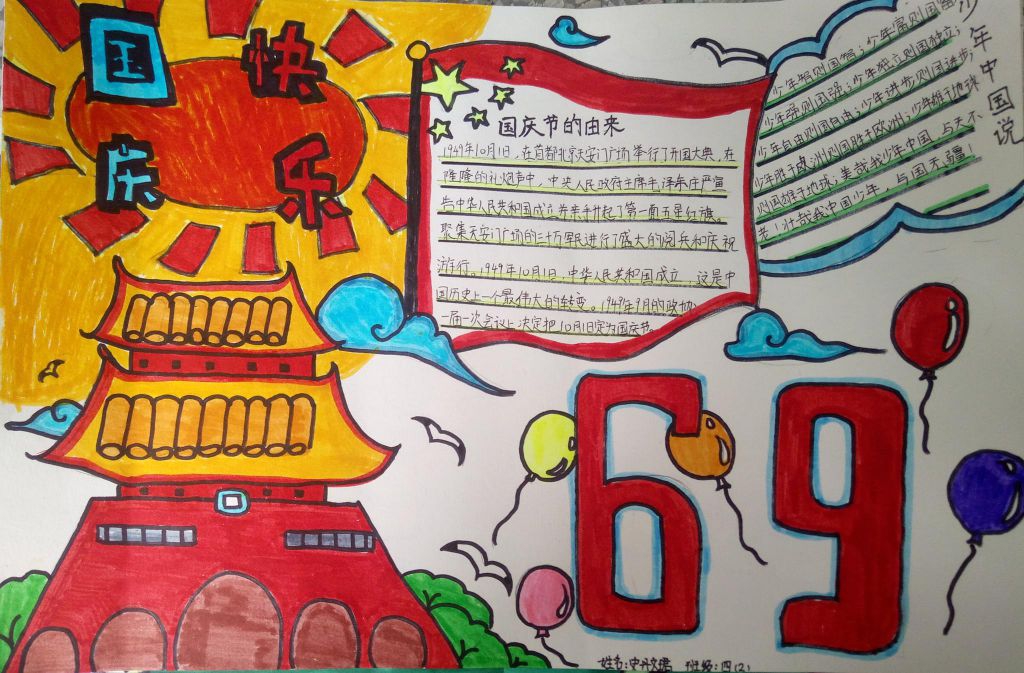 国快
庆乐
国庆节的由来
1949年10月1日,在首都北京天安门广场举行了开国大典,在
隆隆的礼炮声中,中央人民政府主席毛泽东庄严宣
告中华人民共和国成立并亲手升起了第一面五星红旗。
聚集天安门广场的三十万军民进行了盛大的阅兵和庆祝
游行。1949年10月1日,中华人民共和国成立,这是中
国历史上一个最伟大的转变。1949年9月的政协
一届一次会议上决定把10月1日定为国庆节。
少年中国说
少年智则国智;少年富则国富
少年强则国强;少年独立则国独立;
少年自由则国自由;少年进步则国进步;
少年胜于欧洲则国胜于欧洲;少年雄于地球
则国雄于地球;美哉我少年中国,与天不
老!壮哉我中国少年,与国无疆!
69
姓名:史 班级:四(2)